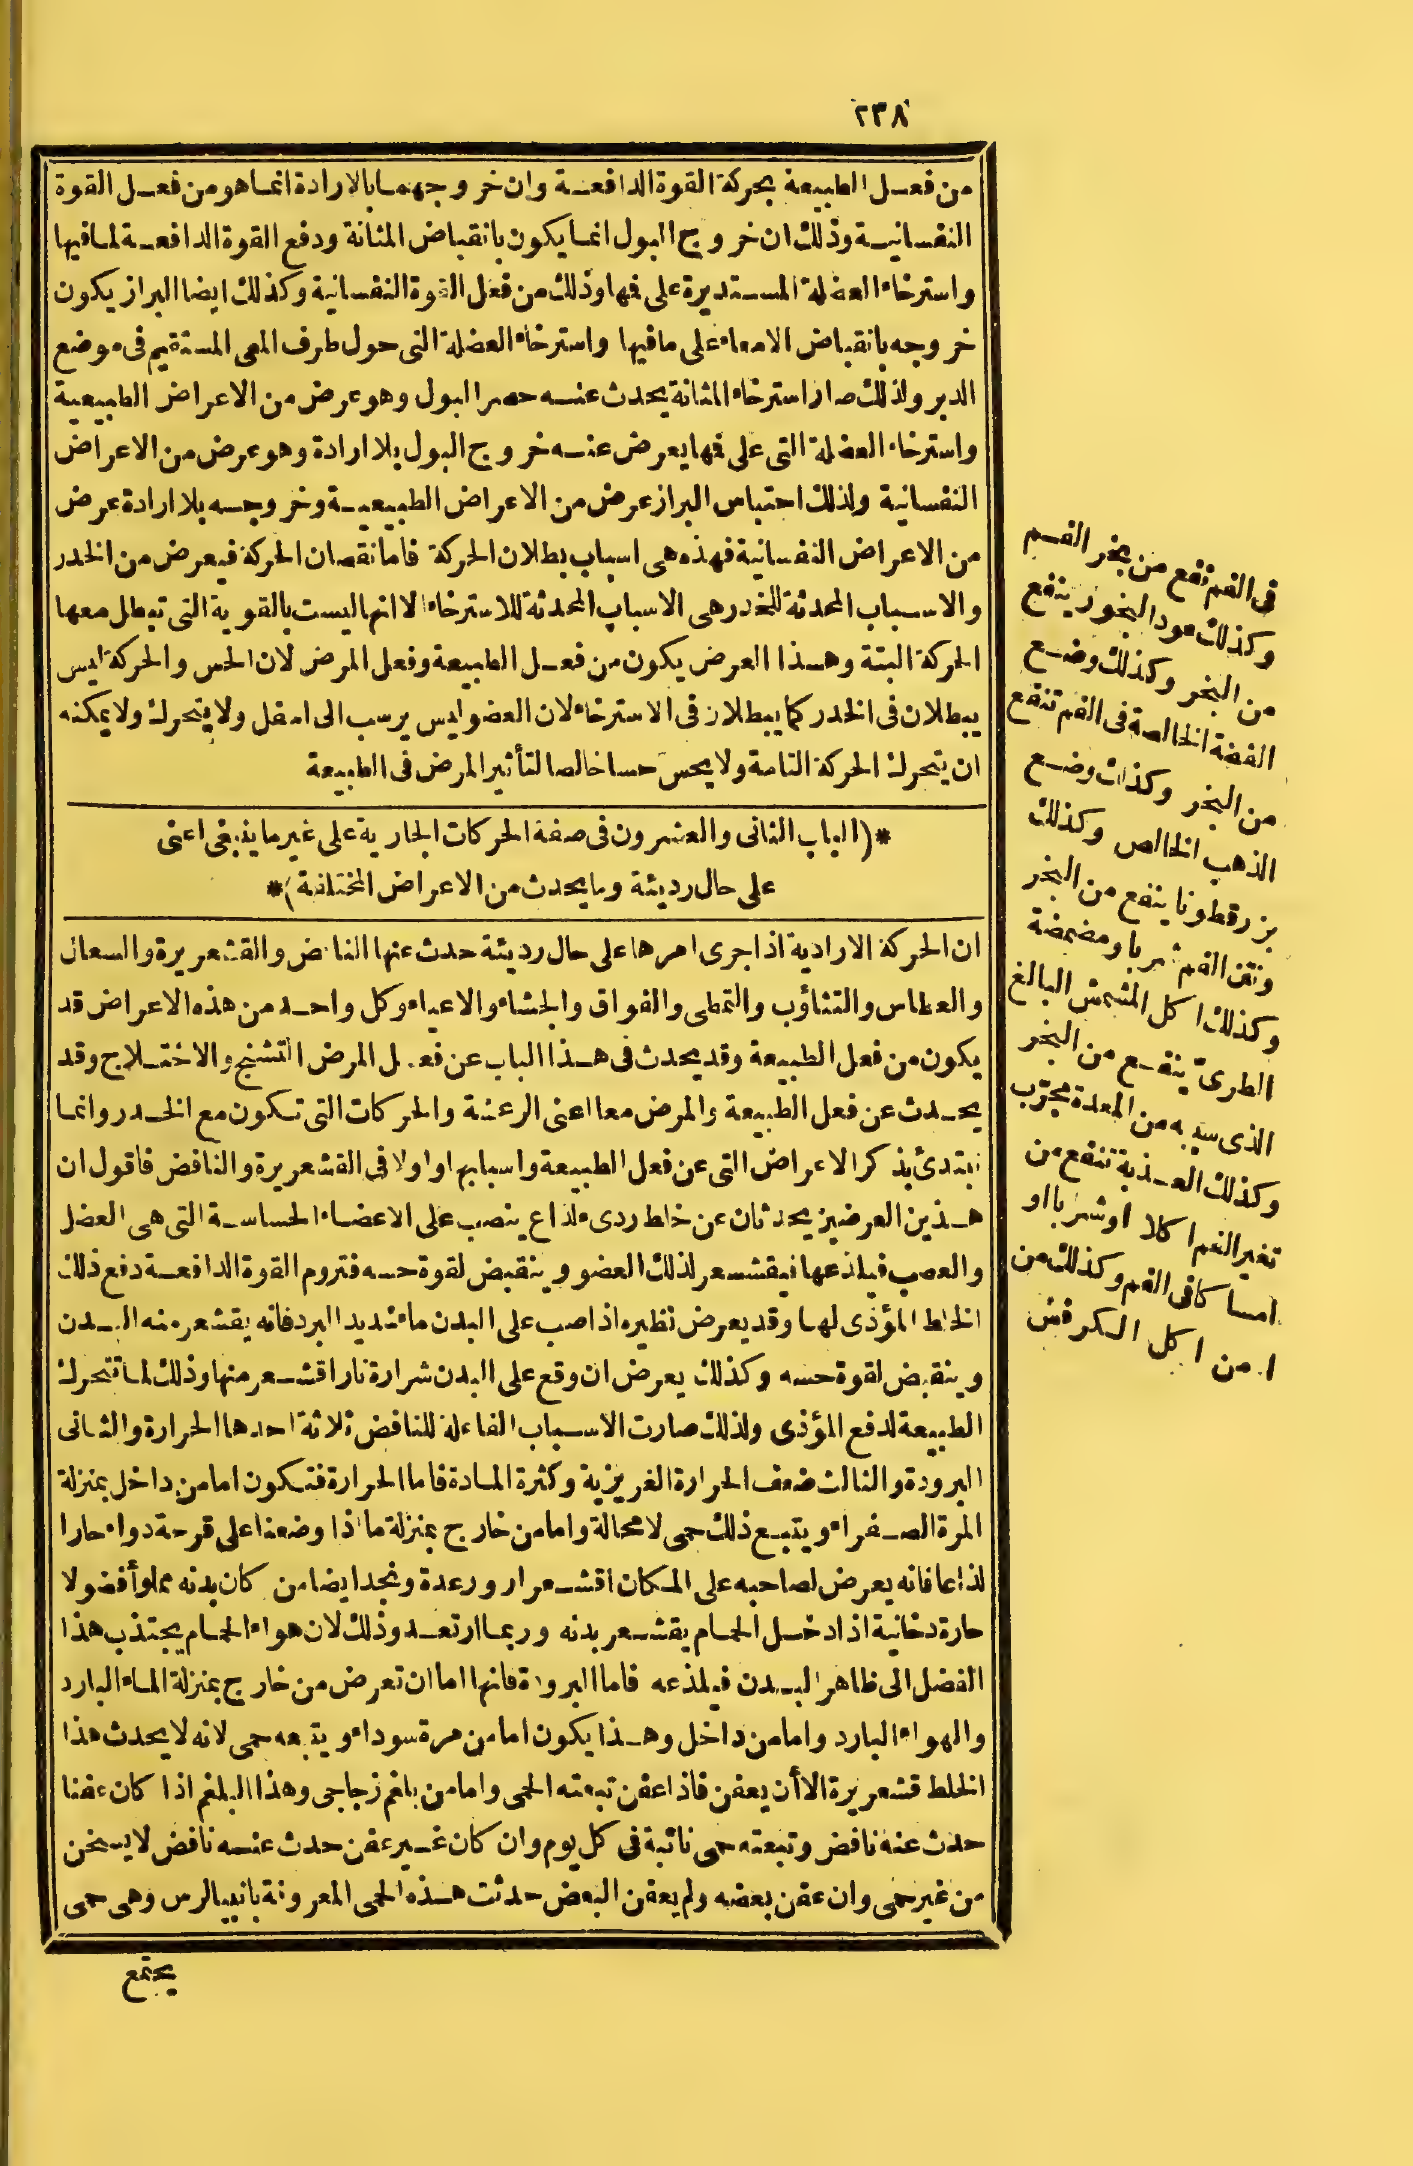 ٢٣٨
من فعل الطبيعة بحركة القوة الدافعة وان خروجهما بالارادة انما هو من فعل القوة
النفسانية وذلك ان خروج البول انما يكون بانقباض المثانة ودفع القوة الدافعة لما فيها
واسترخاء العضلة المستديرة على فمها وذلك من فعل القوة النفسانية وكذلك ايضا البراز يكون
خروجه بانقباض الامعاء على ما فيها واسترخاء العضلة التى حول طرف المعى المستقيم فى موضع
الدبر ولذلك صار استرخاء المثانة يحدث عنه حصر البول وهو عرض من الاعراض الطبيعية
واسترخاء العضلة التى على فمها يعرض عنه خروج البول بلا ارادة وهو عرض من الاعراض
النفسانية ولذلك احتباس البراز عرض من الاعراض الطبيعية وخروجه بلا ارادة عرض
من الاعراض النفسانية فهذه هى اسباب بطلان الحركة فاما نقصان الحركة فيعرض من الخدر
والاسباب المحدثة للخدر هى الاسباب المحدثة للاسترخاء الا انها ليست بالقوية التى تبطل معها
الحركة البتة وهذا العرض يكون من فعل الطبيعة وفعل المرض لان الحس والحركة ليس
يبطلان فى الخدر كما يبطلان فى الاسترخاء لان العضو ليس يرسب الى اسفل ولا يتحرك ولا يمكنه
ان يتحرك الحركة التامة ولا يحس حسا خالصا لتأثير المرض فى الطبيعة
*(الباب الثانى والعشرون فى صفة الحركات الجارية على غير ما ينبغى اعنى
على حال رديئة وما يحدث من الاعراض المختلفة)*
ان الحركة الارادية اذا جرى امرها على حال رديئة حدث عنها النافض والقشعريرة والسعال
والعطاس والتثاؤب والتمطى والفواق والجشاء والاعياء وكل واحد من هذه الاعراض قد
يكون من فعل الطبيعة وقد يحدث فى هذا الباب عن فعل المرض التشنج والاختلاج وقد
يحدث عن فعل الطبيعة والمرض معا اعنى الرعشة والحركات التى تكون مع الخدر وانما
نبتدئ بذكر الاعراض التى عن فعل الطبيعة واسبابها واولا فى القشعريرة والنافض فاقول ان
هذين العرضين يحدثان عن خلط ردىء لذاع ينصب على الاعضاء الحساسة التى هى العضل
والعصب فيلذعها فيقشعر لذلك العضو وينقبض لقوة حسه فتروم القوة الدافعة دفع ذلك
الخلط المؤذى لها وقد يعرض نظيره اذا صب على البدن ماء شديد البرد فانه يقشعر منه البدن
وينقبض لقوة حسه وكذلك يعرض ان وقع على البدن شرارة نار اقشعر منها وذلك لما تتحرك
الطبيعة لدفع المؤذى ولذلك صارت الاسباب الفاعلة للنافض ثلاثة احدها الحرارة والثانى
البرودة والثالث ضعف الحرارة الغريزية وكثرة المادة فاما الحرارة فتكون اما من داخل بمنزلة
المرة الصفراء ويتبع ذلك حمى لا محالة واما من خارج بمنزلة ما اذا وضعنا على قرحة دواء حارا
لذاعا فانه يعرض لصاحبه على المكان اقشعرار ورعدة ونجد ايضا من كان بدنه مملوأ فضولا
حارة دخانية اذا دخل الحمام يقشعر بدنه وربما ارتعد وذلك لان هواء الحمام يجتذب هذا
الفضل الى ظاهر البدن فيلذعه فاما البرودة فانها اما ان تعرض من خارج بمنزلة الماء البارد
والهواء البارد واما من داخل وهذا يكون اما من مرة سوداء ويتبعه حمى لانه لا يحدث هذا
الخلط قشعريرة الا أن يعفن فاذا عفن تبعته الحمى واما من بلغم زجاجى وهذا البلغم اذا كان عفنا
حدث عنه نافض وتبعته حمى نائبة فى كل يوم وان كان غير عفن حدث عنه نافض لا يسخن
من غير حمى وان عفن بعضه ولم يعفن البعض حدثت هذه الحمى المعروفة بانبيالرس وهى حمى
يجتمع
فى الفم تنفع من بخر الفم
وكذلك عود البخور ينفع
من البخر وكذلك وضع
الفضة الخالصة فى الفم تنفع
من البخر وكذلك وضع
الذهب الخالص وكذلك
بزر قطونا ينفع من البخر
ونتن الفم شربا ومضمضة
وكذلك اكل المشمش البالغ
الطرى ينفع من البخر
الذى سببه من المعدة مجرّب
وكذلك العذبة تنفع من
تغير الفم اكلا او شربا او
امساكا فى الفم وكذلك من
من اكل الكرفس